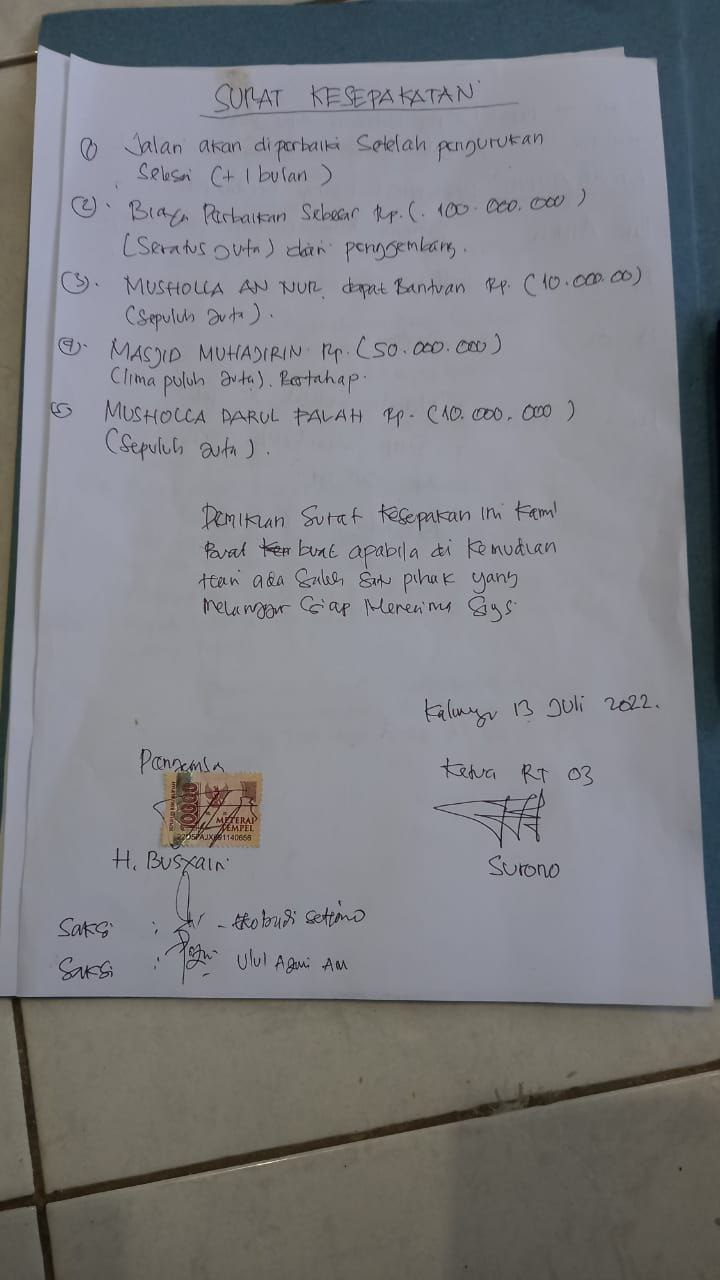 SURAT KESEPAKATAN
(1) Jalan akan diperbaiki Setelah pengurukan
Selesai (+ 1 bulan)
(2). Biaya Perbaikan Sebesar Rp. (. 100.000.000)
(Seratus Juta) dari pengembang.
(3). MUSHOLLA AN NUR, dapat Bantuan Rp. (10.000.00)
(Sepuluh Juta).
(4). MASJID MUHAJIRIN Rp. (50.000.000)
(lima puluh Juta). Bertahap.
(5) MUSHOLLA DARUL FALAH Rp. (10.000.000)
(Sepuluh Juta).
Demikian Surat Kesepakan ini Kami
buat apabila di Kemudian
Hari ada Salah Satu pihak yang
Melanggar Siap Menerima
13 Juli 2022.
Pengemba
Ketua RT 03
10000
METERAI
TEMPEL
H. Busyairi
Surono
Saksi : - Eko budi Setiono
Saksi : Ulul Azmi AM